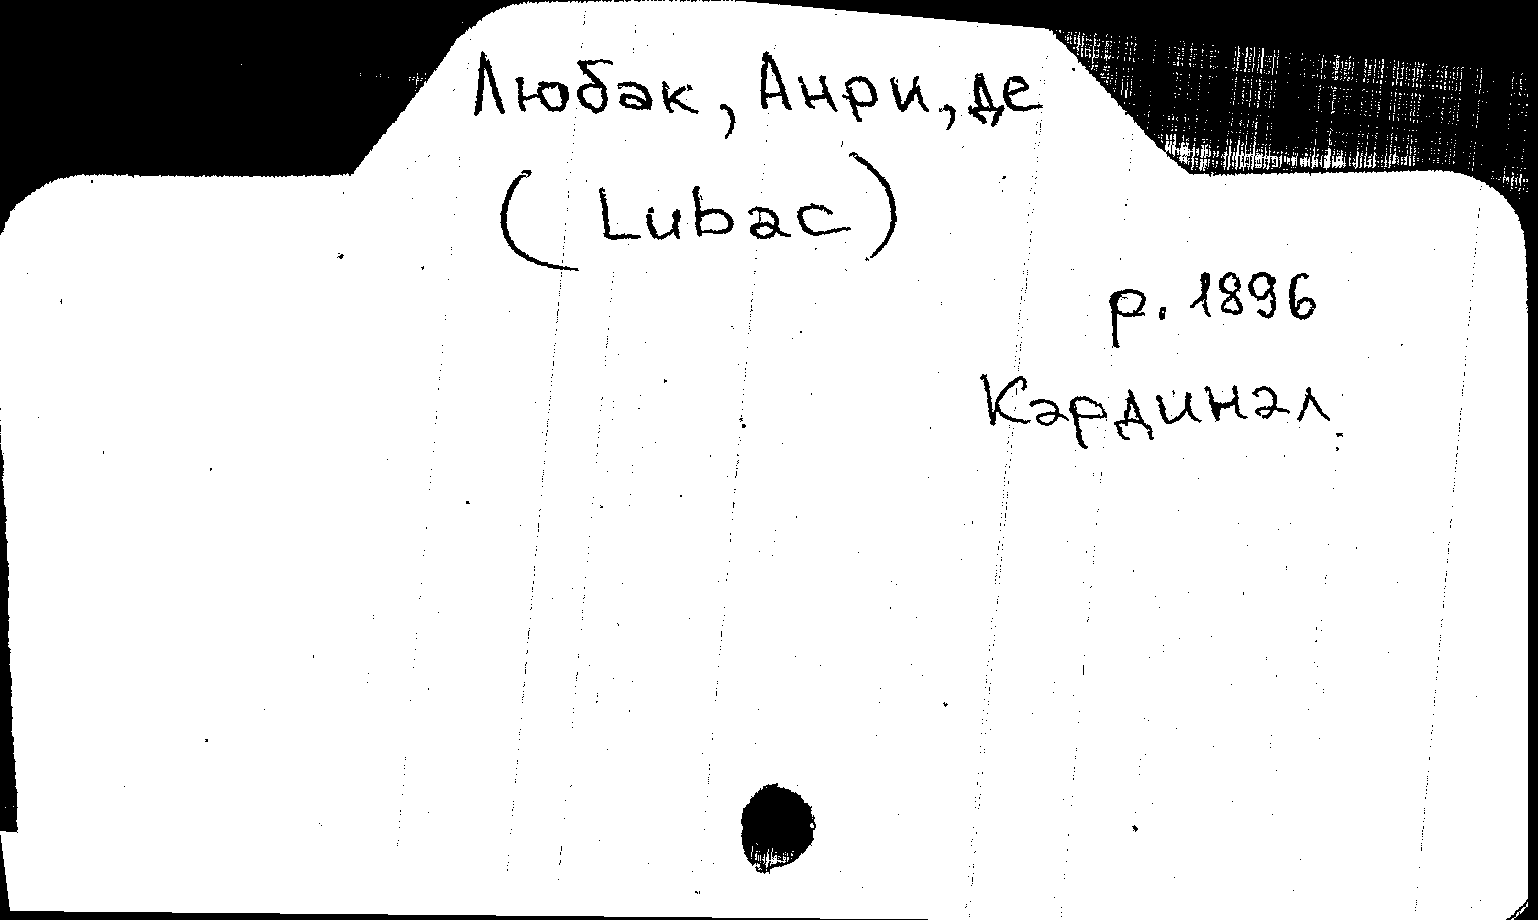 Любак, Анри, де
(Lubac)
р. 1896
Кардинал.